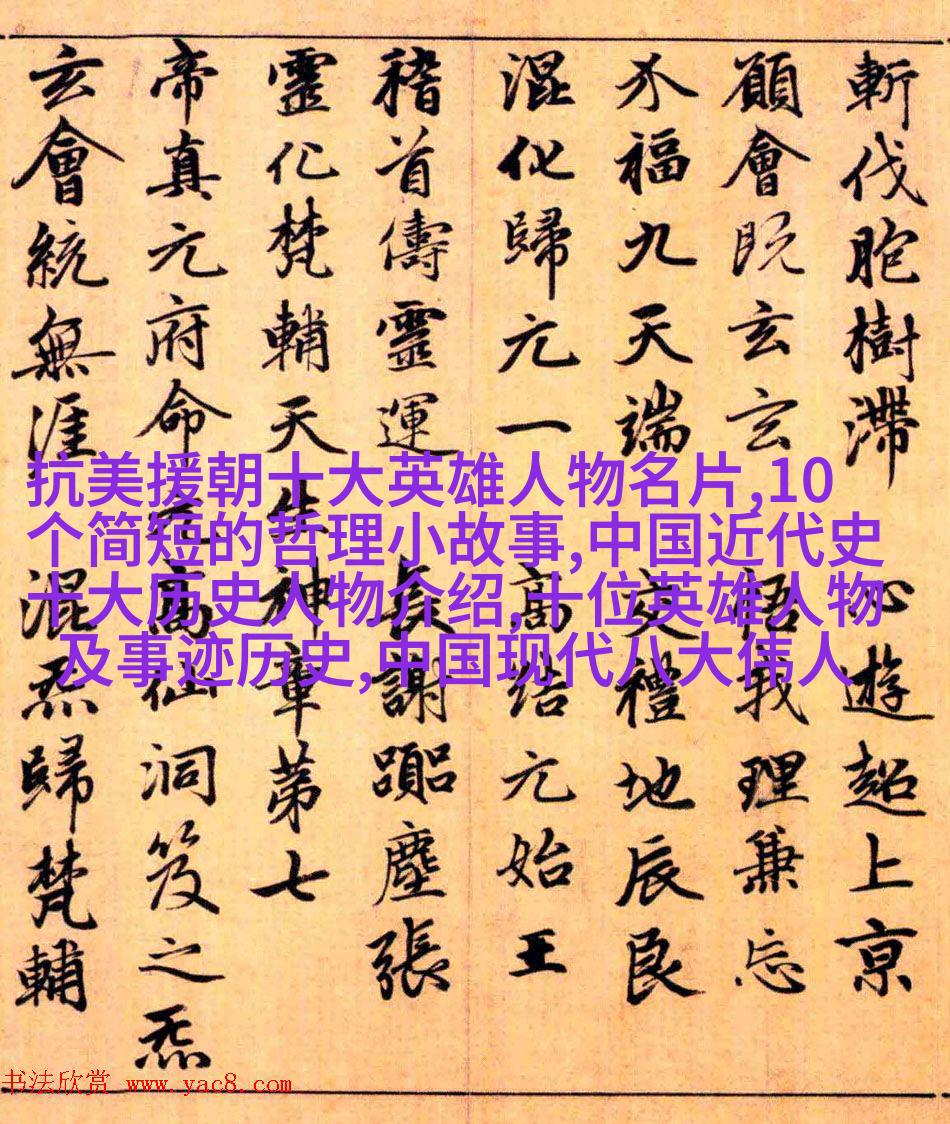 斬伐胞樹滯 心遊超上京
願會既玄玄 悟我理兼忘
介福九天端 交禮地辰良
混化歸元一 高結元始王
稽首儔靈運 長謝塵張
靈化梵輔天生神章第七
帝真元府命元高仙洞笈之炁
玄會統無涯 混炁歸梵輔
抗美援朝十大英雄人物名片,10
个简短的哲理小故事,中国近代史
十大历史人物介绍,十位英雄人物
及事迹历史,中国现代八大伟人
书法欣赏 www.yac8.com